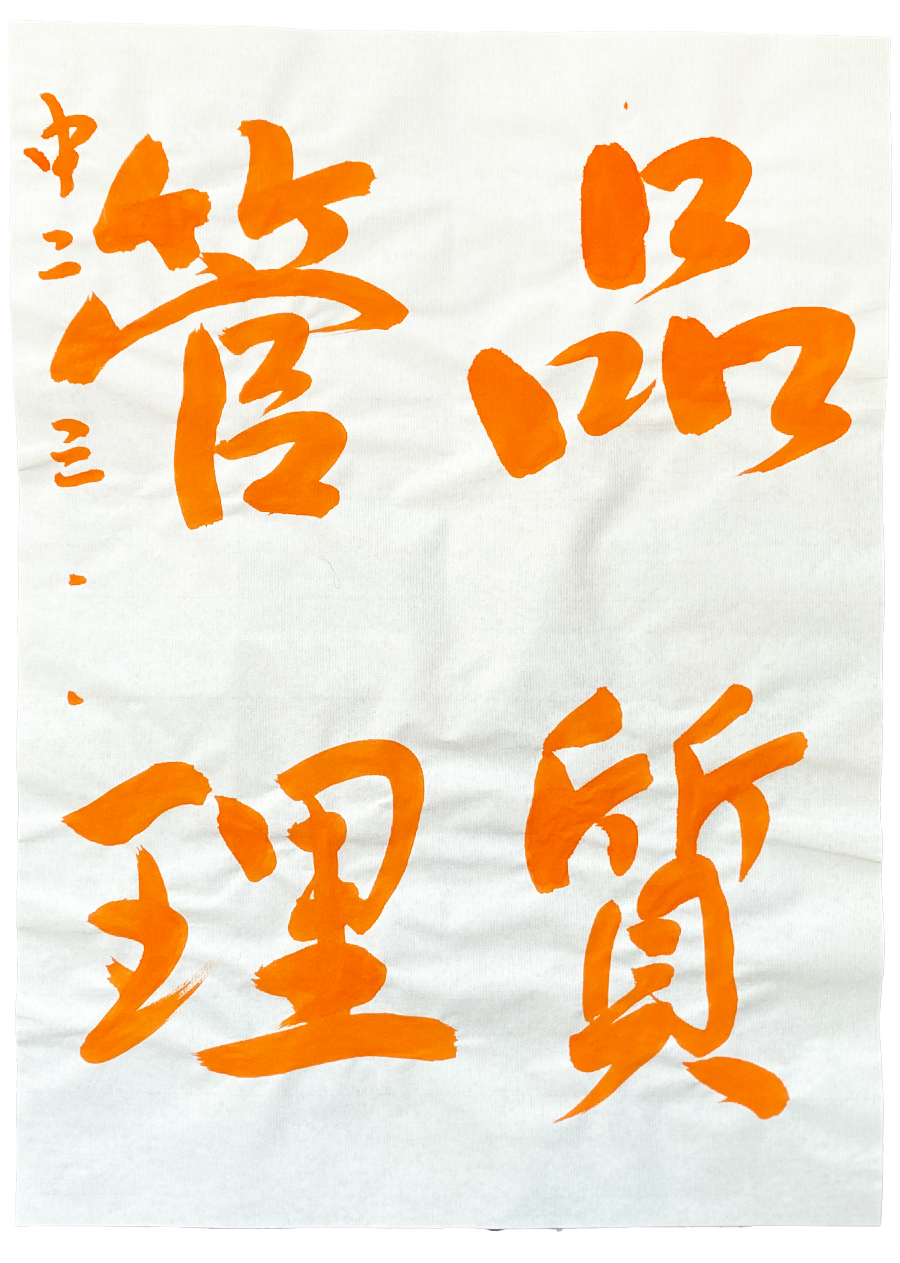 品質
管理
中二三・・